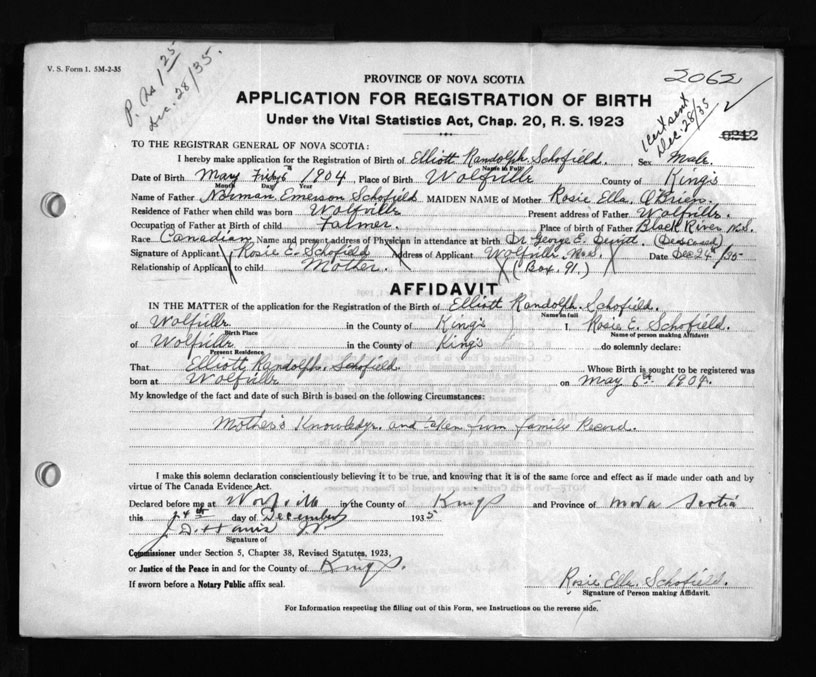 V. S. Form 1. 5M-2-35
P. As 1 25
Dec. 28/35.
2062
Cert sent
Dec. 28/35
0212
PROVINCE OF NOVA SCOTIA
APPLICATION FOR REGISTRATION OF BIRTH
Under the Vital Statistics Act, Chap. 20, R. S. 1923
TO THE REGISTRAR GENERAL OF NOVA SCOTIA:
I hereby make application for the Registration of Birth of Elliott Randolph Schofield. Sex Male.
Name in Full
Date of Birth May Friday 6th 1904, Place of Birth Wolfville County of King's
Month Day Year
Name of Father Norman Emerson Schofield MAIDEN NAME of Mother Rosie Ella O'Brien.
Residence of Father when child was born Wolfville Present address of Father Wolfville.
Occupation of Father at Birth of child Farmer. Place of birth of Father Black River N.S.
Race Canadian Name and present address of Physician in attendance at birth Dr George E. Dewitt. (Deceased)
Signature of Applicant Rosie E. Schofield Address of Applicant Wolfville N.S. Date Dec 24th/35
Relationship of Applicant to child Mother. (Box. 91.)
AFFIDAVIT
IN THE MATTER of the application for the Registration of the Birth of Elliott Randolph Schofield.
Name in full
of Wolfville in the County of King's I, Rosie E. Schofield.
Birth Place Name of person making Affidavit
of Wolfville in the County of King's do solemnly declare:
Present Residence
That Elliott Randolph Schofield. Whose Birth is sought to be registered was
born at Wolfville on May 6th 1904.
My knowledge of the fact and date of such Birth is based on the following Circumstances:
Mother's Knowledge and taken from family Record.
I make this solemn declaration conscientiously believing it to be true, and knowing that it is of the same force and effect as if made under oath and by
virtue of The Canada Evidence Act.
Declared before me at Wolfville in the County of Kings and Province of Nova Scotia
this 24th day of December 1935
J. D. Harris
Signature of
Commissioner under Section 5, Chapter 38, Revised Statutes, 1923,
or Justice of the Peace in and for the County of Kings.
If sworn before a Notary Public affix seal.
Rosie Ella Schofield.
Signature of Person making Affidavit.
For Information respecting the filling out of this Form, see Instructions on the reverse side.